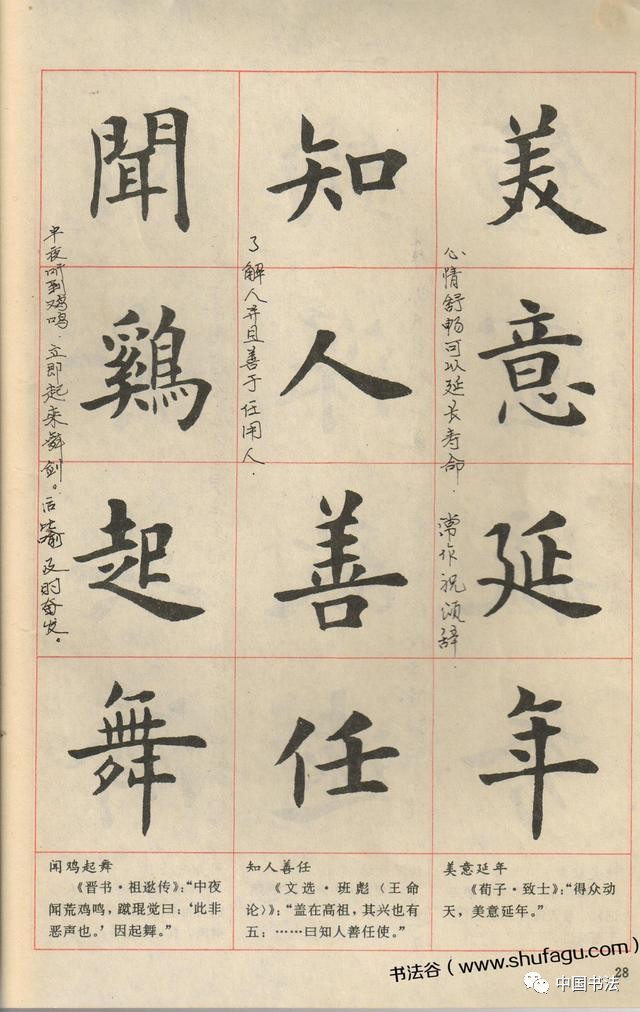 美意延年
心情舒畅可以延长寿命．常作祝颂辞．
知人善任
了解人并且善于任用人．
聞鷄起舞
半夜听到鸡鸣．立即起来舞剑。后比喻及时奋发。
美意延年
《荀子·致士》：“得众动
天，美意延年。”
知人善任
《文选·班彪（王命
论）》：“盖在高祖，其兴也有
五：……曰知人善任使。”
闻鸡起舞
《晋书·祖逖传》：“中夜
闻荒鸡鸣，蹴琨觉曰：‘此非
恶声也。’因起舞。”
书法谷（www.shufagu.com）
28
中国书法